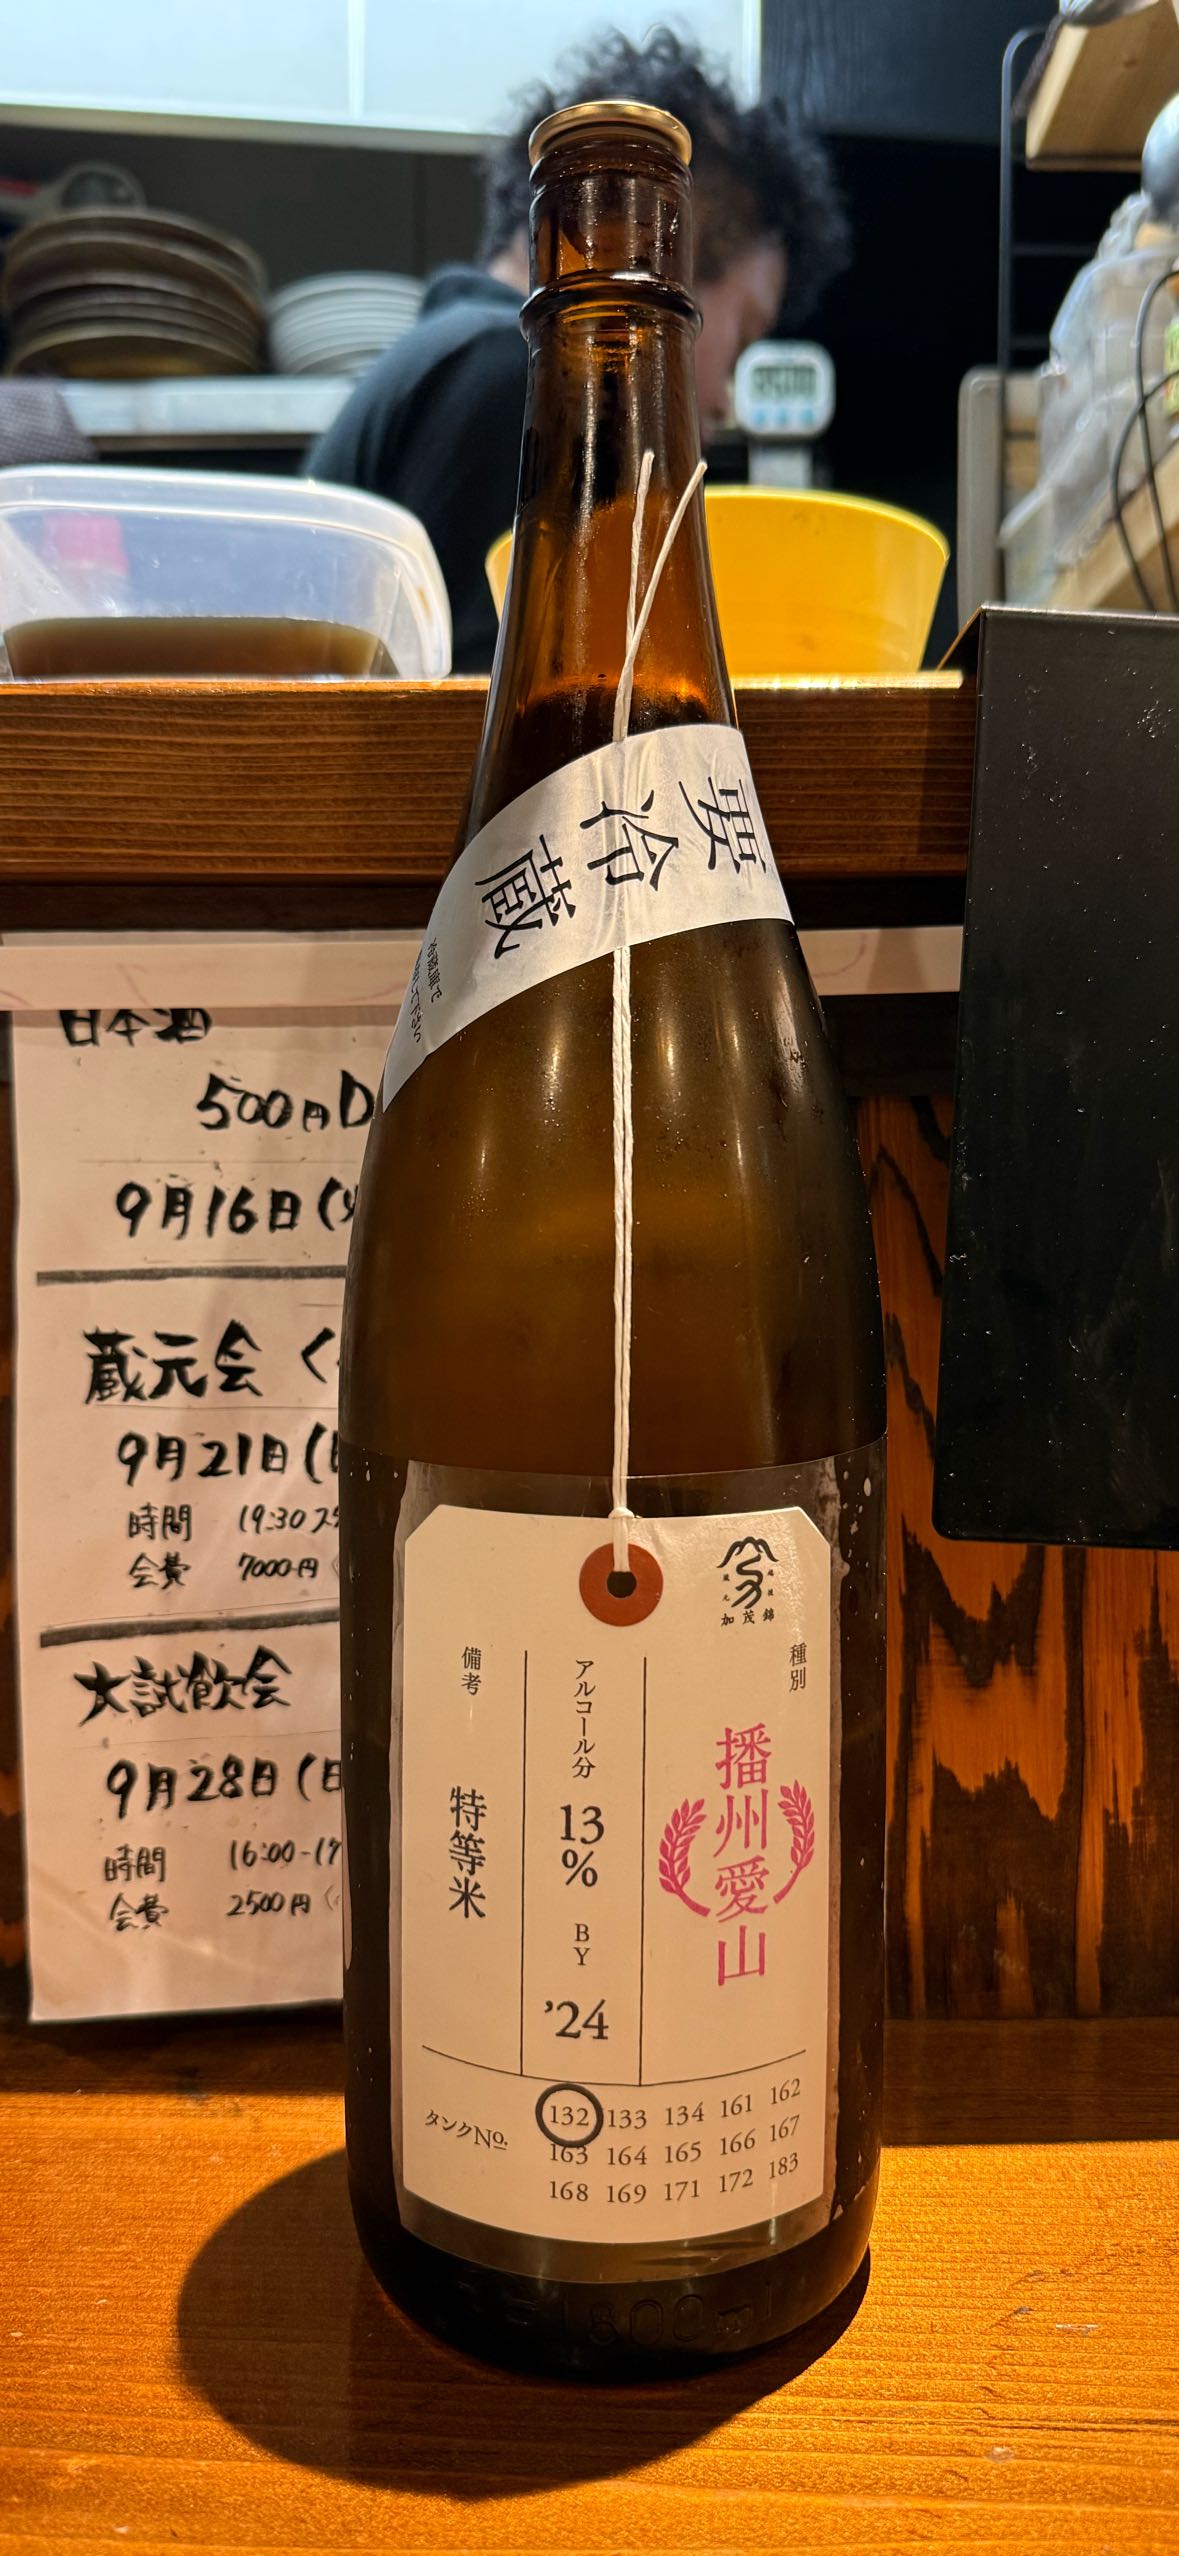 要冷蔵
冷蔵庫で
日本酒
500円D
9月16日(火
蔵元会
9月21日(日
時間 19:30
会費 7000円
大試飲会
9月28日(日
時間 16:00-17
会費 2500円
加茂錦
種別
播州愛山
アルコール分 13% BY '24
備考
特等米
タンクNo.
132 133 134 161 162
163 164 165 166 167
168 169 171 172 183
1800ml